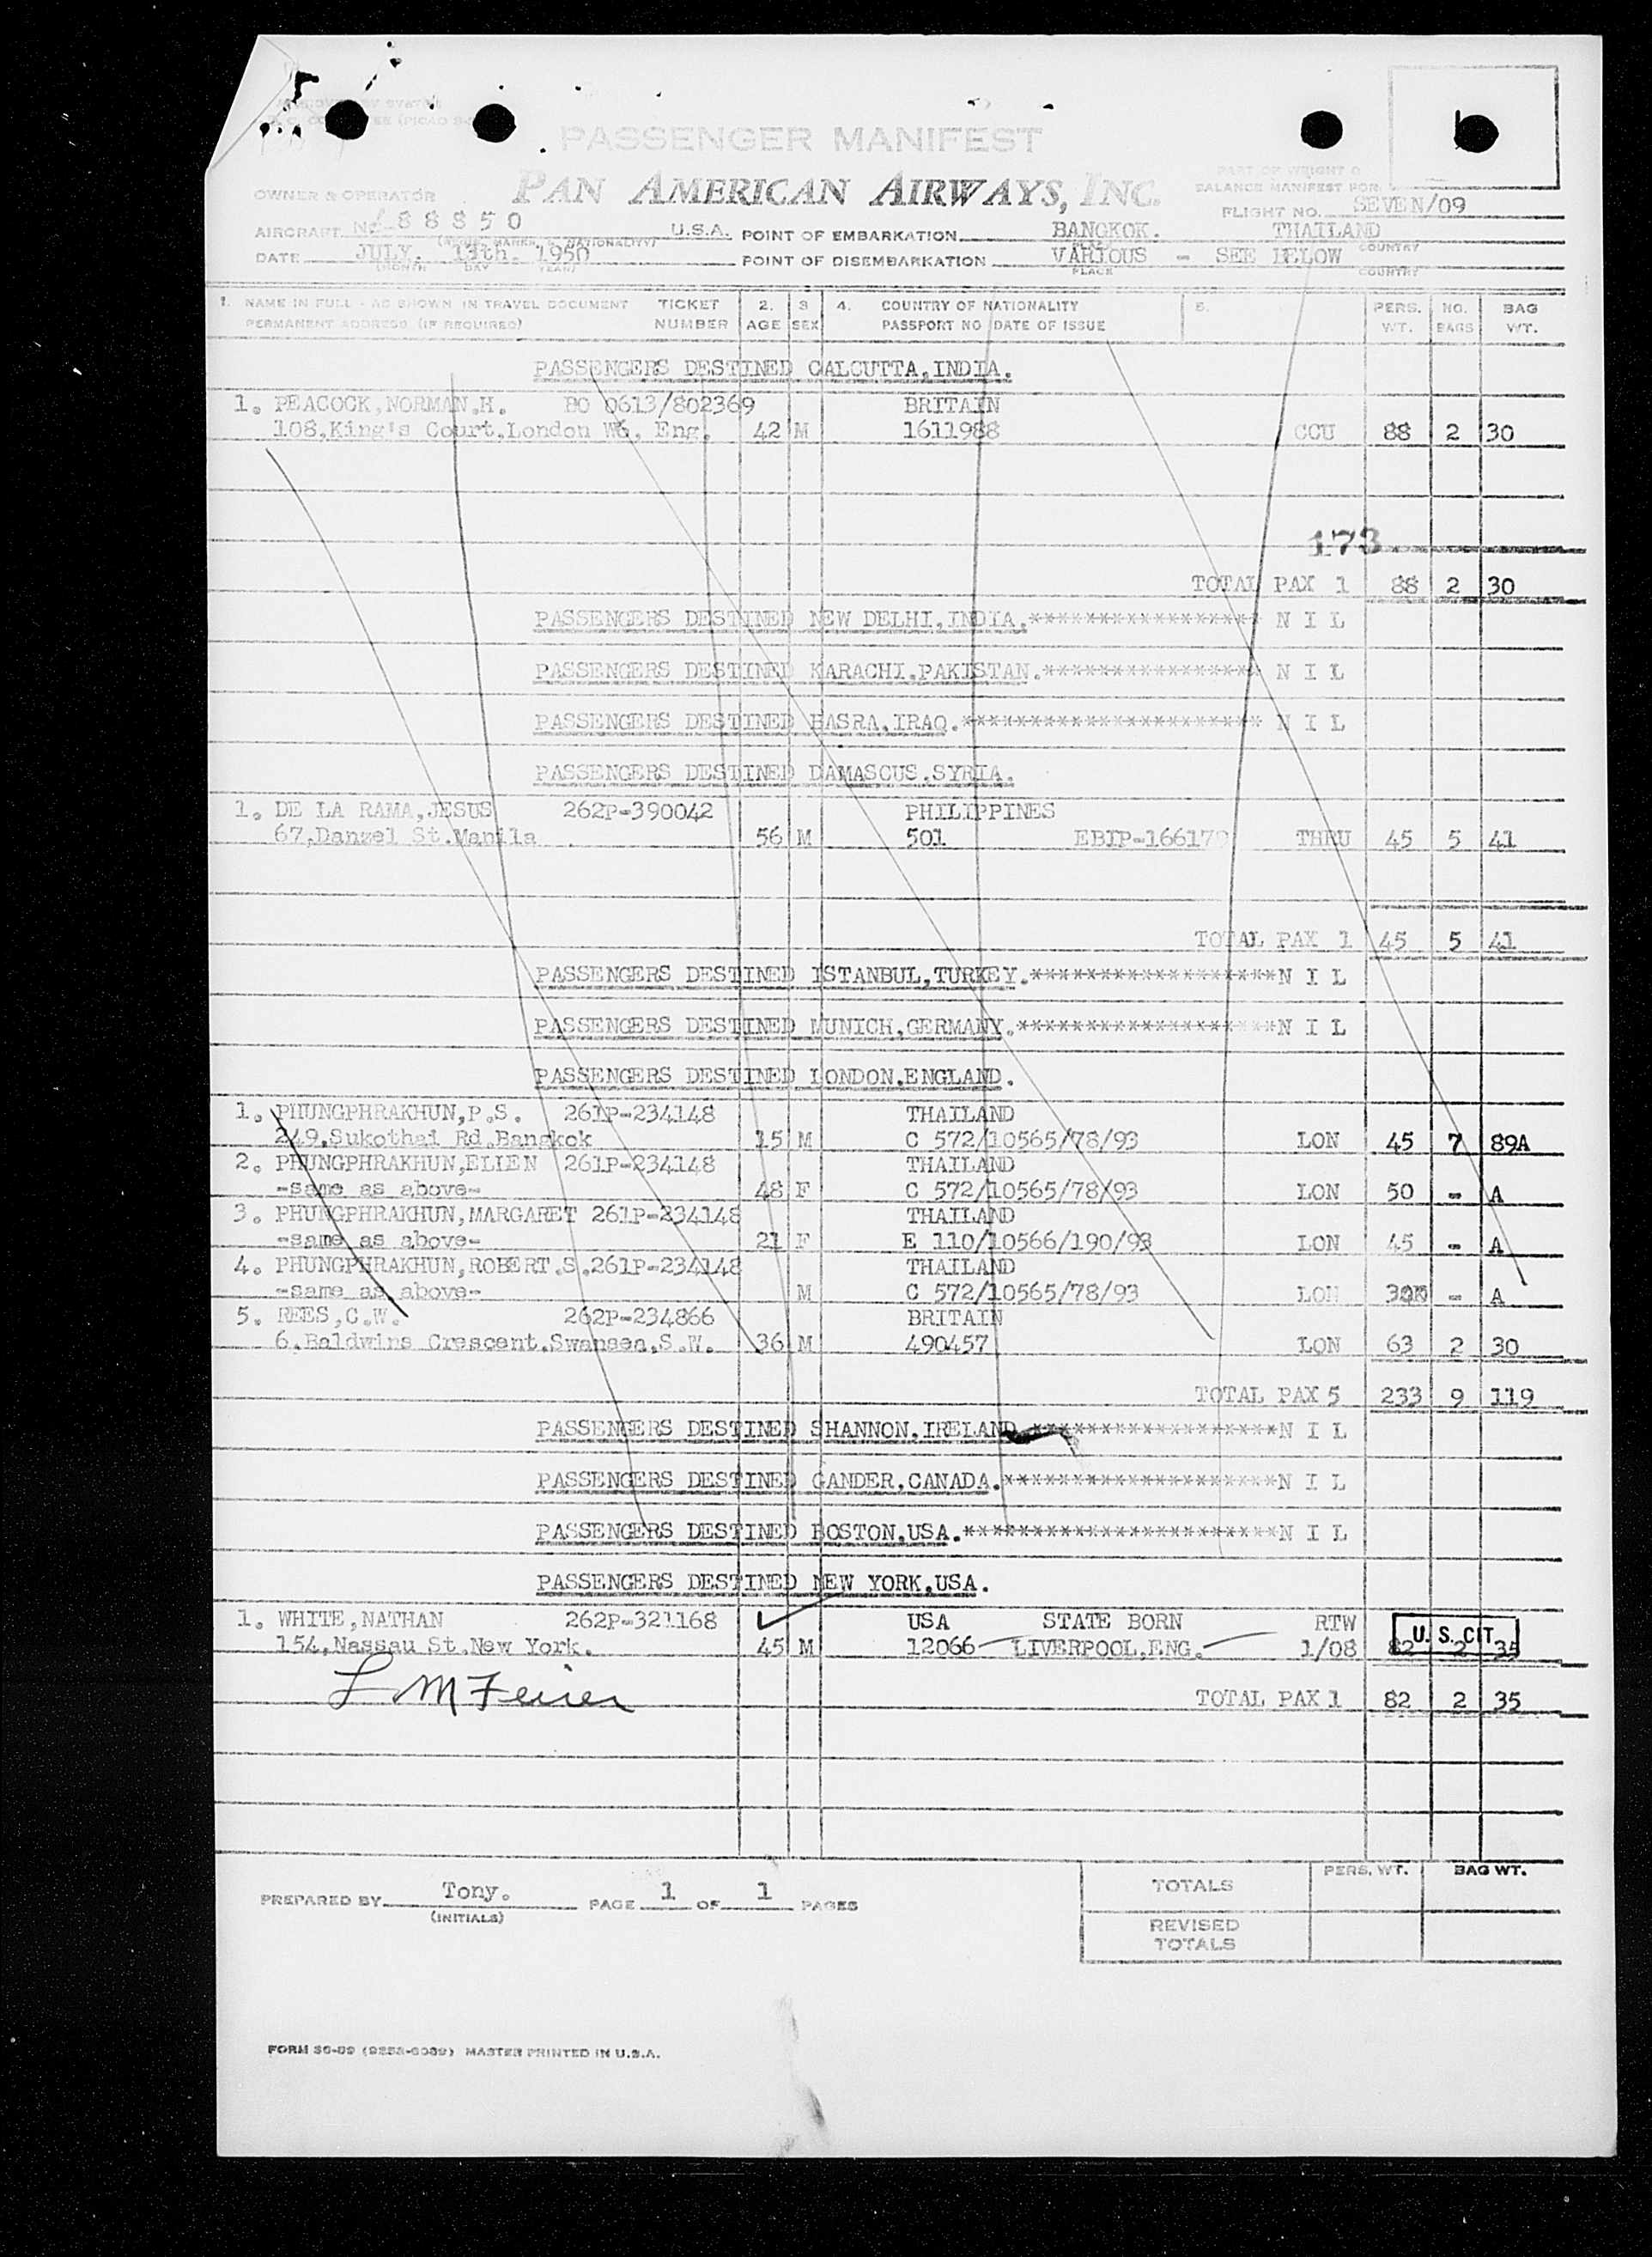 PASSENGER MANIFEST
PAN AMERICAN AIRWAYS, INC.
OWNER & OPERATOR
PART OF WEIGHT &
BALANCE MANIFEST FOR
FLIGHT NO. SEVEN/09
AIRCRAFT 88850 U.S.A. POINT OF EMBARKATION BANGKOK. THAILAND
DATE JULY. 13th. 1950 POINT OF DISEMBARKATION VARIOUS - SEE BELOW
(MONTH DAY YEAR) PLACE COUNTRY
1. NAME IN FULL - AS SHOWN IN TRAVEL DOCUMENT TICKET 2. 3 4. COUNTRY OF NATIONALITY 5. PERS. NO. BAG
PERMANENT ADDRESS (IF REQUIRED) NUMBER AGE SEX PASSPORT NO DATE OF ISSUE WT. BAGS WT.
PASSENGERS DESTINED CALCUTTA,INDIA.
1. PEACOCK,NORMAN.H. BO 0613/802369 BRITAIN
108,King's Court,London W6, Eng. 42 M 1611988 CCU 88 2 30
173
TOTAL PAX 1 88 2 30
PASSENGERS DESTINED NEW DELHI,INDIA.***************** N I L
PASSENGERS DESTINED KARACHI.PAKISTAN.**************** N I L
PASSENGERS DESTINED BASRA,IRAQ.********************** N I L
PASSENGERS DESTINED DAMASCUS.SYRIA.
1. DE LA RAMA,JESUS 262P-390042 PHILIPPINES
67,Danzel St.Manila 56 M 501 EBIP-166179 THRU 45 5 41
TOTAL PAX 1 45 5 41
PASSENGERS DESTINED ISTANBUL,TURKEY.******************N I L
PASSENGERS DESTINED MUNICH,GERMANY.*******************N I L
PASSENGERS DESTINED LONDON.ENGLAND.
1. PHUNGPHRAKHUN,P.S. 261P-234148 THAILAND
249,Sukothai Rd.Bangkok 15 M C 572/10565/78/93 LON 45 7 89A
2. PHUNGPHRAKHUN,ELLEN 261P-234148 THAILAND
-same as above- 48 F C 572/10565/78/93 LON 50 - A
3. PHUNGPHRAKHUN,MARGARET 261P-234148 THAILAND
-same as above- 21 F E 110/10566/190/93 LON 45 - A
4. PHUNGPHRAKHUN,ROBERT.S.261P-234148 THAILAND
-same as above- M C 572/10565/78/93 LON - A
5. REES,C.W. 262P-234866 BRITAIN
6.Baldwins Crescent.Swansea,S.W. 36 M 490457 LON 63 2 30
TOTAL PAX 5 233 9 119
PASSENGERS DESTINED SHANNON.IRELAND.******************N I L
PASSENGERS DESTINED GANDER,CANADA.********************N I L
PASSENGERS DESTINED BOSTON,USA.***********************N I L
PASSENGERS DESTINED NEW YORK,USA.
1. WHITE,NATHAN 262P-321168 USA STATE BORN RTW
154,Nassau St.New York. 45 M 12066 LIVERPOOL,ENG. 1/08 82 2 35
U. S. CIT.
TOTAL PAX 1 82 2 35
PREPARED BY Tony. PAGE 1 OF 1 PAGES
(INITIALS)
PERS. WT. BAG WT.
TOTALS
REVISED
TOTALS
MASTER PRINTED IN U.S.A.